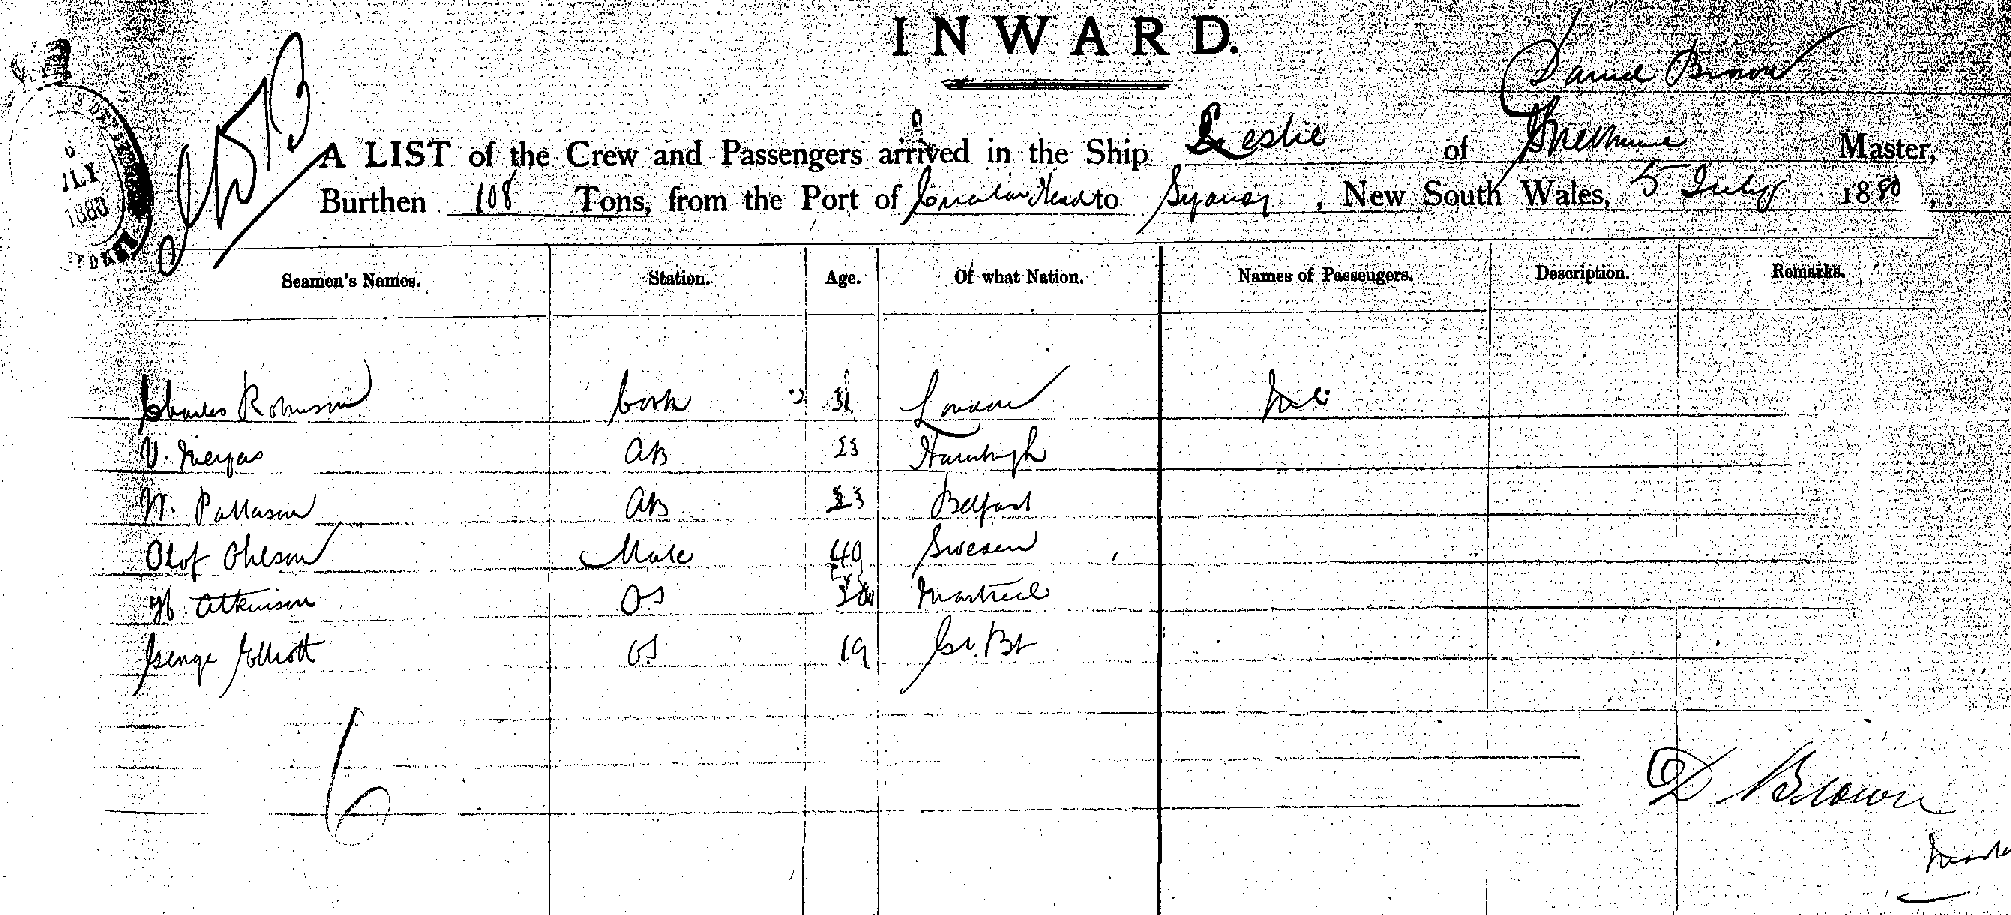 INWARD.
Daniel Brown
A LIST of the Crew and Passengers arrived in the Ship Leslie of Melbourne Master,
Burthen 108 Tons, from the Port of Head to Sydney, New South Wales, 5 July 1880,
JLY
Seamen's Names. Station. Age. Of what Nation. Names of Passengers. Description. Remarks.
Charles Robinson Cook 31 London Nil
V. 23 Hamburgh
AB
W. Pattason AB 23 Belfast
Olof Ohlson Mate 40 Sweden
H. Atkinson OS Montreal
George Elliott OS 19 Gr. Bt
6
D Brown